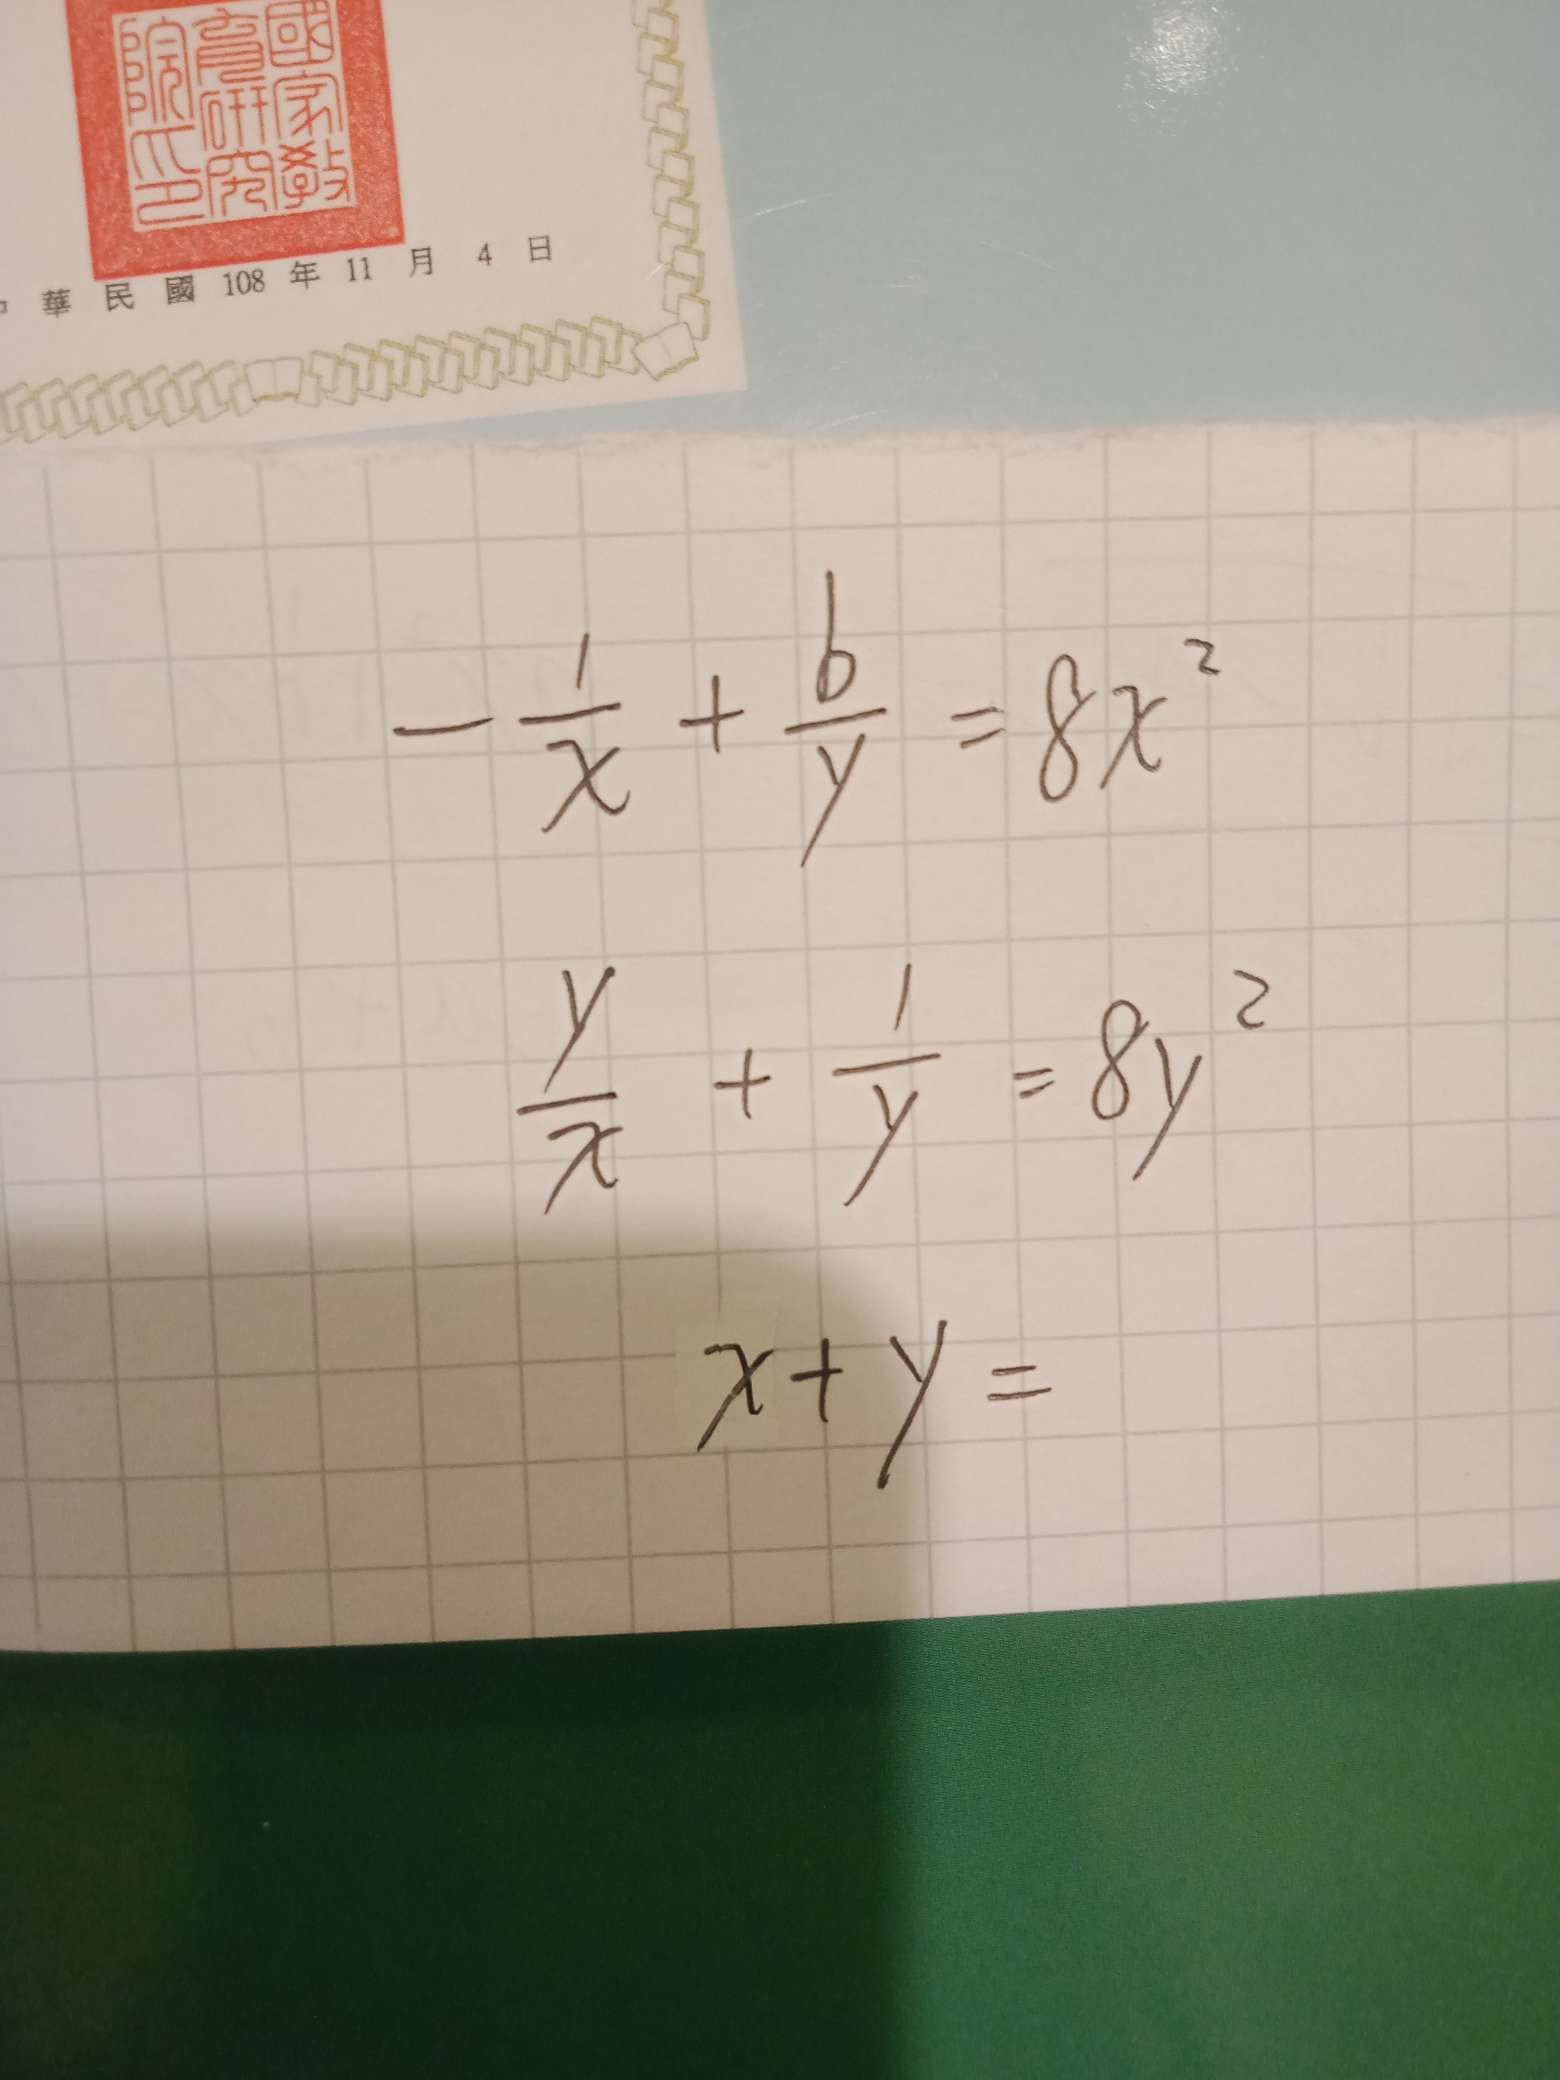 國家教
育研究
院印
中華民國 108 年 11 月 4 日
-1/x + 6/y = 8x²
y/x + 1/y = 8y²
x + y =